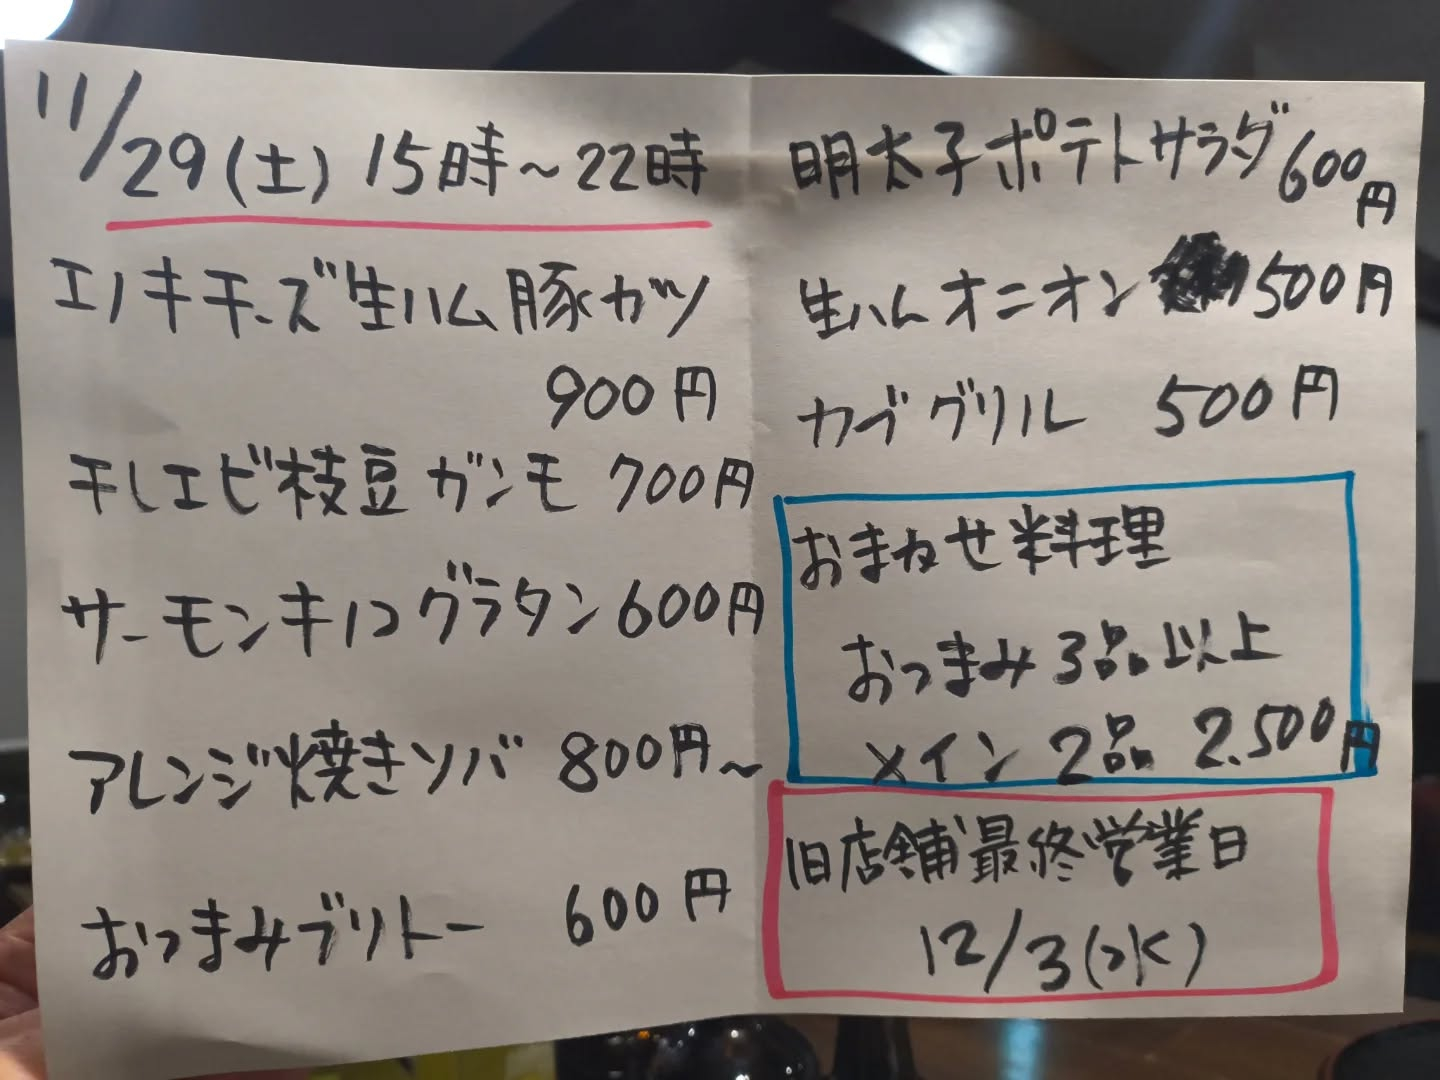 11/29(土) 15時～22時
エノキチーズ生ハム豚カツ
900円
干しエビ枝豆ガンモ 700円
サーモンキノコグラタン600円
アレンジ焼きソバ 800円～
おつまみブリトー 600円
明太子ポテトサラダ600円
生ハムオニオン 500円
カブグリル 500円
おまかせ料理
おつまみ3品以上
メイン 2品 2.500円
旧店舗最終営業日
12/3(水)